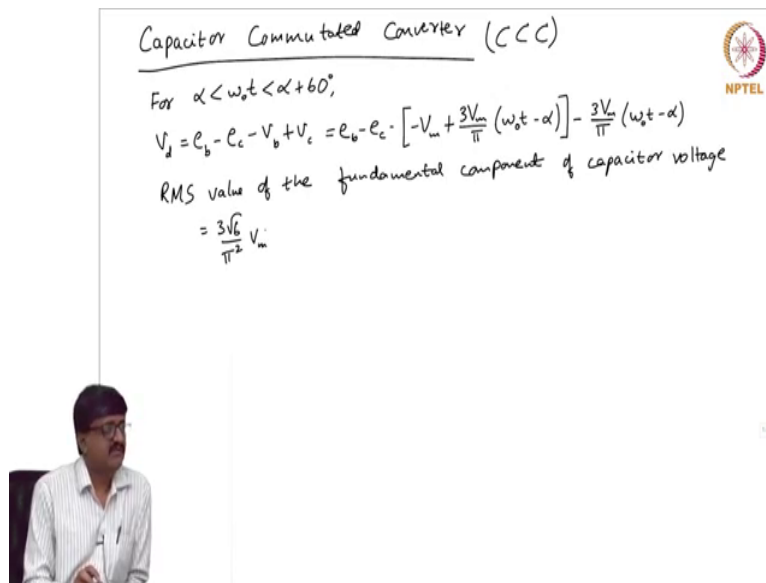 Capacitor Commutated Converter (CCC)
NPTEL
For α < ω₀t < α+60°,
V_d = e_b - e_c - V_b + V_c = e_b - e_c - [-V_m + 3V_m/π (ω₀t - α)] - 3V_m/π (ω₀t - α)
RMS value of the fundamental component of capacitor voltage
= 3√6/π² V_m